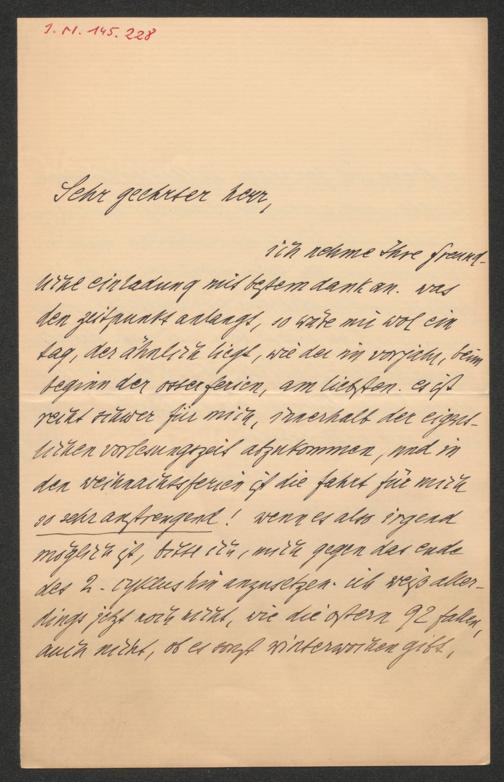 J. N. 145.228
Sehr geehrter herr,
ich nehme Ihre freund-
liche einladung mit bestem dank an. was
den zeitpunkt anlangt, so wäre mir wol ein
tag, der ähnlich liegt, wie der im vorjahr, beim
beginn der osterferien, am liebsten. es ist
recht schwer für mich, innerhalb der eigent-
lichen vorlesungszeit abzukommen, und in
den weihnachtsferien ist die fahrt für mich
so sehr anstrengend! wenn es also irgend
möglich ist, bitte ich, mich gegen das ende
des 2. cyklus hin anzusetzen. ich weiß aller-
dings jetzt noch nicht, wie die ostern 92 fallen,
auch nicht, ob es sonst winterwochen gibt,